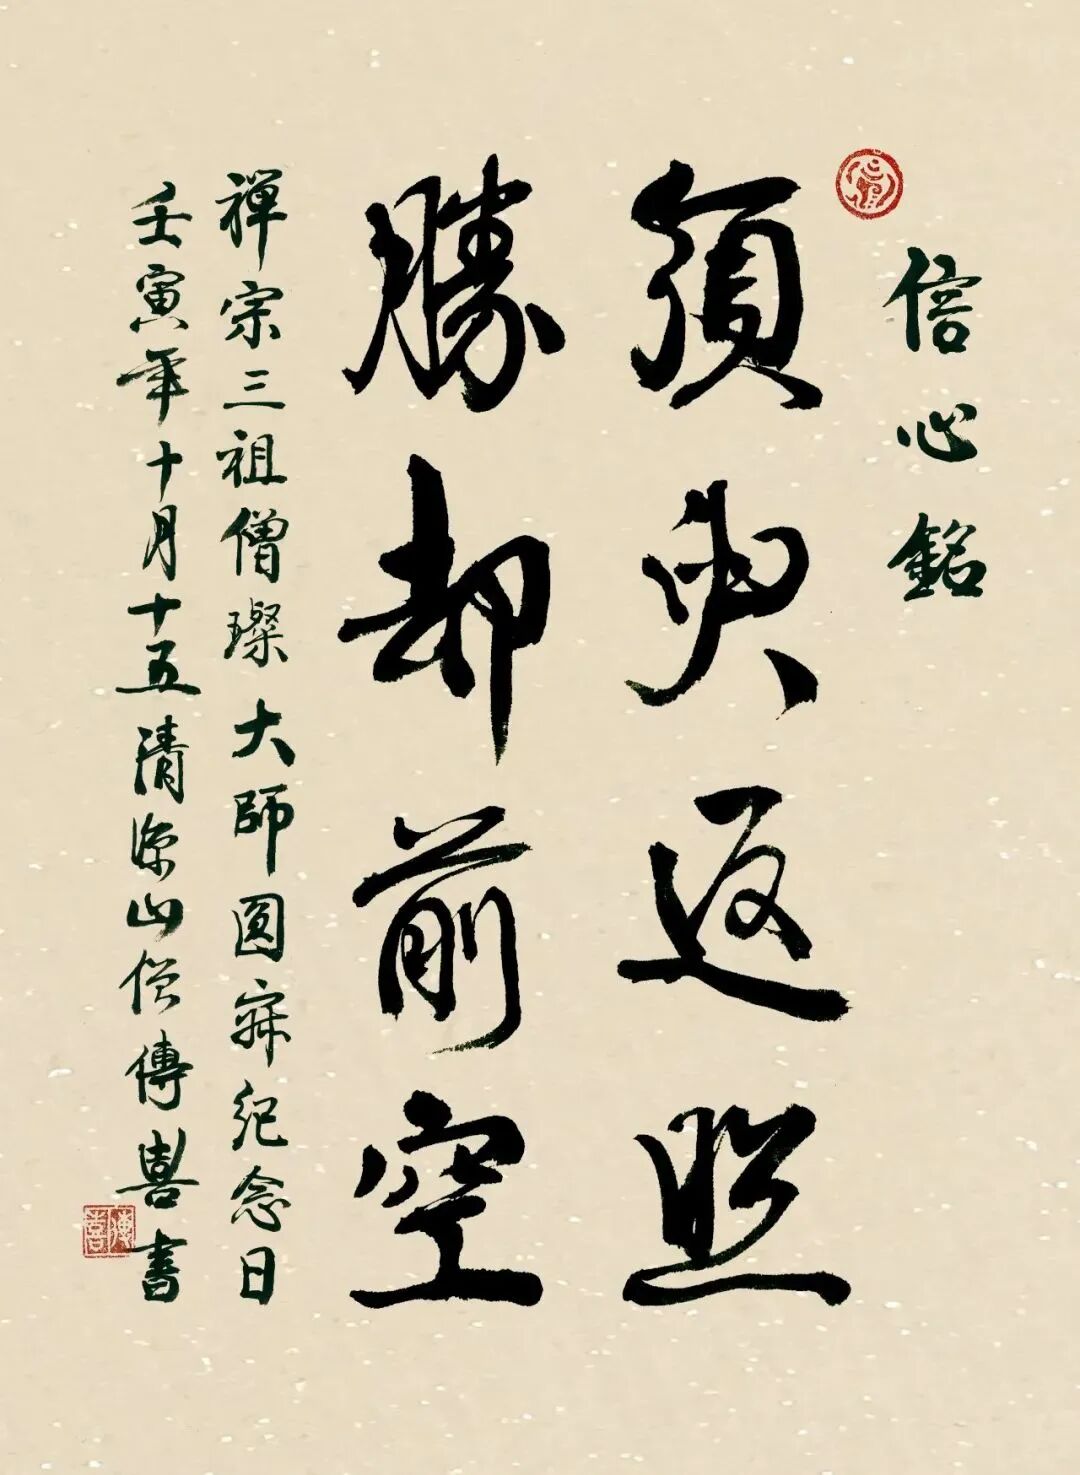 信心銘
須臾返照
勝却前空
禅宗三祖僧璨大師圓寂紀念日
壬寅年十月十五清源山僧傳喜書
傳喜